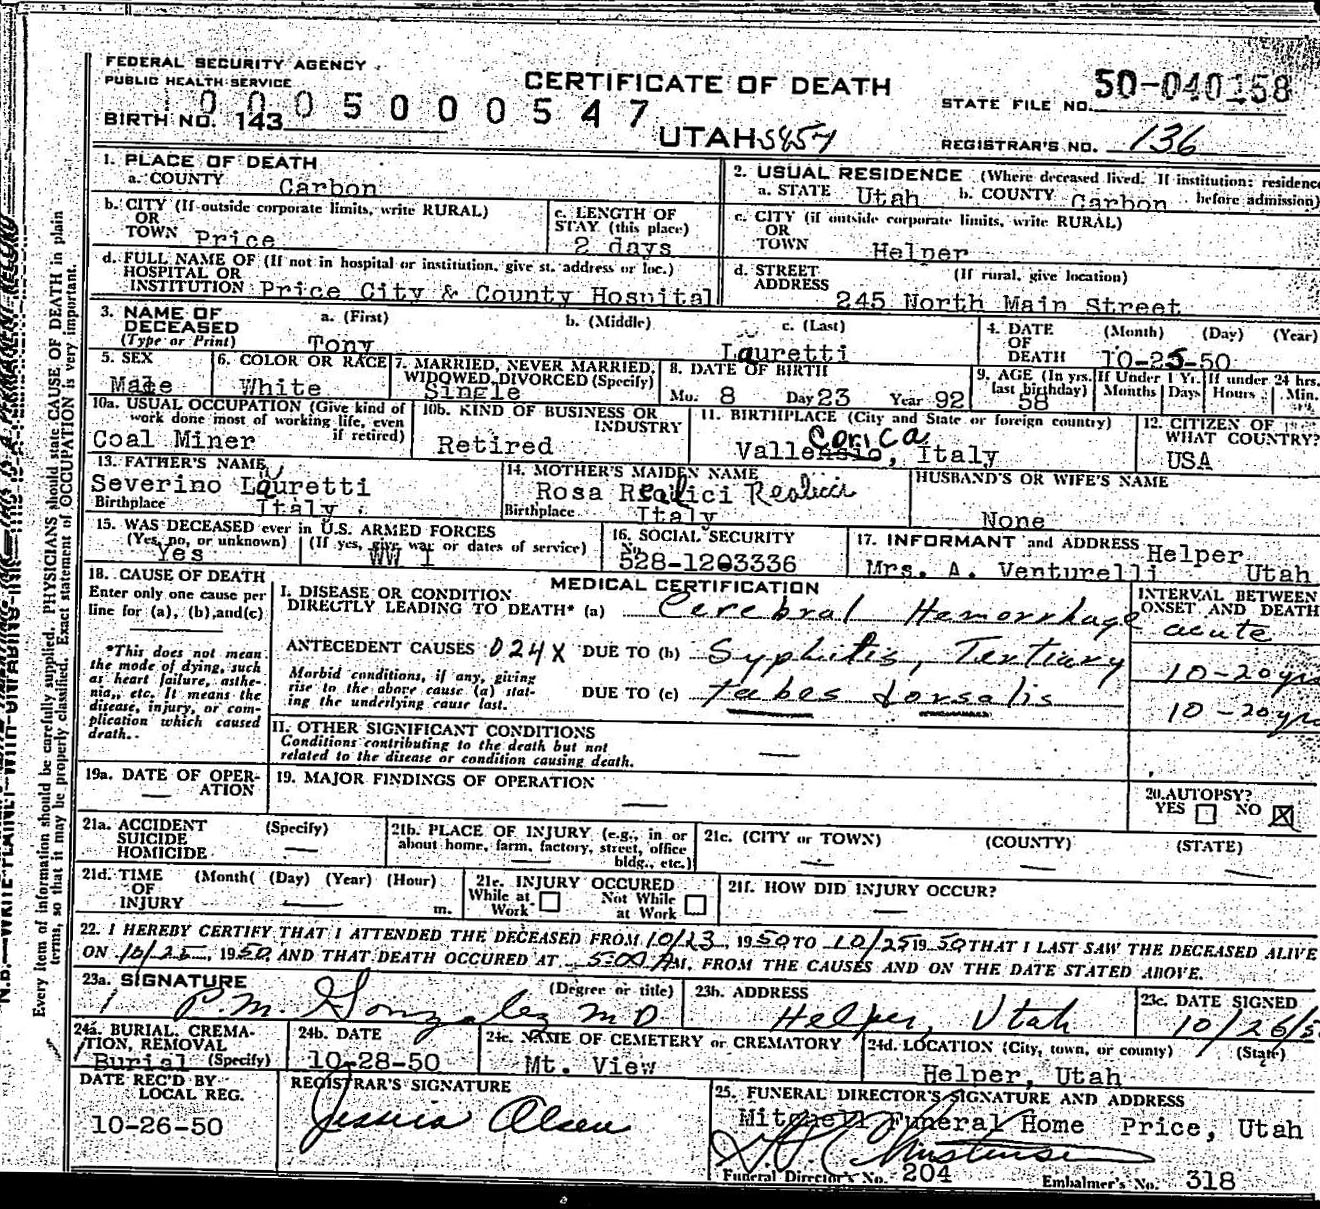 FEDERAL SECURITY AGENCY
PUBLIC HEALTH SERVICE
CERTIFICATE OF DEATH
STATE FILE NO. 50-040158
BIRTH NO. 143 0005000547
UTAH 5857
REGISTRAR'S NO. 136
1. PLACE OF DEATH
a. COUNTY Carbon
2. USUAL RESIDENCE (Where deceased lived. If institution: residence before admission)
a. STATE Utah b. COUNTY Carbon
b. CITY (If outside corporate limits, write RURAL)
OR
TOWN Price
c. LENGTH OF
STAY (this place)
2 days
c. CITY (if outside corporate limits, write RURAL)
OR
TOWN Helper
d. FULL NAME OF (If not in hospital or institution, give st. address or loc.)
HOSPITAL OR
INSTITUTION Price City & County Hospital
d. STREET (If rural, give location)
ADDRESS
245 North Main Street
3. NAME OF
DECEASED
(Type or Print)
a. (First) b. (Middle) c. (Last)
Tony Lauretti
4. DATE (Month) (Day) (Year)
OF
DEATH 10-25-50
5. SEX
Male
6. COLOR OR RACE
White
7. MARRIED, NEVER MARRIED,
WIDOWED, DIVORCED (Specify)
Single
8. DATE OF BIRTH
Mo. 8 Day 23 Year 92
9. AGE (In yrs. last birthday)
58
If Under 1 Yr. Months Days
If under 24 hrs. Hours Min.
10a. USUAL OCCUPATION (Give kind of
work done most of working life, even
if retired)
Coal Miner
10b. KIND OF BUSINESS OR
INDUSTRY
Retired
11. BIRTHPLACE (City and State or foreign country)
Corica
Vallensio, Italy
12. CITIZEN OF
WHAT COUNTRY?
USA
13. FATHER'S NAME
Severino Lauretti
Birthplace Italy
14. MOTHER'S MAIDEN NAME
Rosa Realici Realicci
Birthplace Italy
HUSBAND'S OR WIFE'S NAME
None
15. WAS DECEASED ever in U.S. ARMED FORCES
(Yes, no, or unknown) (If yes, give war or dates of service)
Yes WW I
16. SOCIAL SECURITY
No.
528-1203336
17. INFORMANT and ADDRESS Helper
Mrs. A. Venturelli Utah
18. CAUSE OF DEATH
Enter only one cause per
line for (a), (b), and (c)
*This does not mean
the mode of dying, such
as heart failure, asthe-
nia, etc. It means the
disease, injury, or com-
plication which caused
death.
MEDICAL CERTIFICATION
I. DISEASE OR CONDITION
DIRECTLY LEADING TO DEATH* (a) Cerebral Hemorrhage
INTERVAL BETWEEN
ONSET AND DEATH
acute
ANTECEDENT CAUSES 024X DUE TO (b) Syphilis, Tertiary
10-20 yrs
Morbid conditions, if any, giving
rise to the above cause (a) stat-
ing the underlying cause last.
DUE TO (c) tabes dorsalis
10-20 yrs
II. OTHER SIGNIFICANT CONDITIONS
Conditions contributing to the death but not
related to the disease or condition causing death.
19a. DATE OF OPER-
ATION
19. MAJOR FINDINGS OF OPERATION
20. AUTOPSY?
YES NO X
21a. ACCIDENT (Specify)
SUICIDE
HOMICIDE
21b. PLACE OF INJURY (e.g., in or
about home, farm, factory, street, office
bldg., etc.)
21c. (CITY or TOWN) (COUNTY) (STATE)
21d. TIME (Month( (Day) (Year) (Hour)
OF
INJURY m.
21e. INJURY OCCURED
While at Work Not While at Work
21f. HOW DID INJURY OCCUR?
22. I HEREBY CERTIFY THAT I ATTENDED THE DECEASED FROM 10/23, 1950 TO 10/25 1950 THAT I LAST SAW THE DECEASED ALIVE
ON 10/25, 1950, AND THAT DEATH OCCURED AT 5:00 A M. FROM THE CAUSES AND ON THE DATE STATED ABOVE.
23a. SIGNATURE (Degree or title)
P.M. Gonzalez MD
23b. ADDRESS
Helper, Utah
23c. DATE SIGNED
10/26/5
24a. BURIAL, CREMA-
TION, REMOVAL
Burial (Specify)
24b. DATE
10-28-50
24c. NAME OF CEMETERY or CREMATORY
Mt. View
24d. LOCATION (City, town, or county) (State)
Helper, Utah
DATE REC'D BY
LOCAL REG.
10-26-50
REGISTRAR'S SIGNATURE
Jessica Olsen
25. FUNERAL DIRECTOR'S SIGNATURE AND ADDRESS
Mitchell Funeral Home Price, Utah
Funeral Director's No. 204 Embalmer's No. 318
Every item of information should be carefully supplied. PHYSICIANS should state CAUSE OF DEATH in plain
terms, so that it may be properly classified. Exact statement of OCCUPATION is very important.